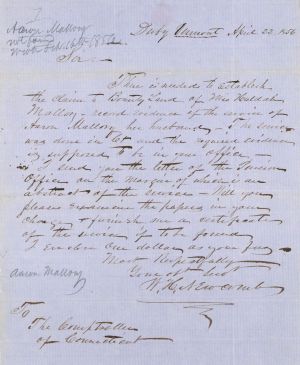 Aaron Mallory
not found
Derby Vermont April 22. 1856
Sir
There is needed to establish
the claim to Bounty Land of Mrs Huldah
Mallory - record evidence of the service of
Aaron Mallory her husband - The service
was done in Ct and the required evidence
is supposed to be in your office -
I send you the letter of the Pension
Office on the margin of which is an
abstract of the service - Will you
please examine the papers in your
charge & furnish me a certificate
of the service if to be found
I enclose One dollar as your fee
Most Respectfully
Your obt Servt
W. H. Newcomb
Aaron Mallory
To
The Comptroller
of Connecticut